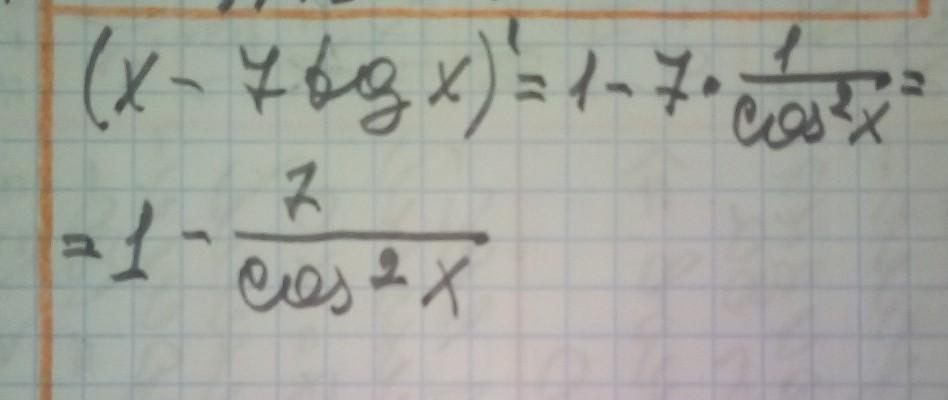 (x - 7 tg x)' = 1 - 7 · 1/cos²x =
= 1 - 7/cos²x